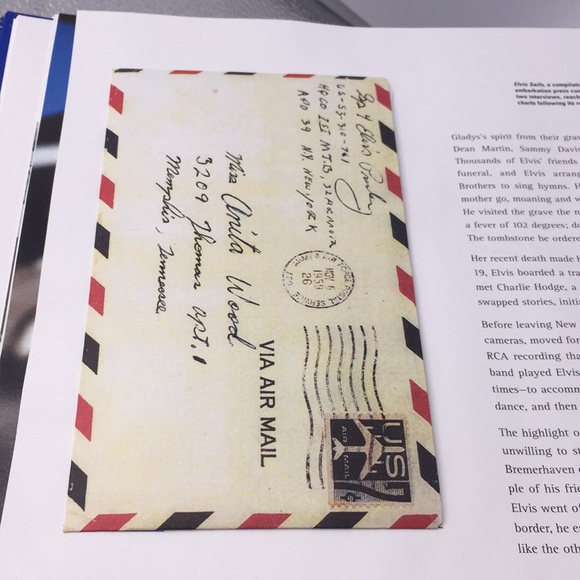 Sp 4 Elvis Presley
US-53-310-761
HQ CO III M.T.B, 32 ARMOR
APO 39 N.Y. NEW YORK
Miss Anita Wood
3209 Thomas apt. 1
Memphis, Tennessee
ARMY & AIR FORCE POSTAL SERVICE
NOV 6
1959
VIA AIR MAIL
US
AIR MAIL
7¢
Elvis Sails, a compilatio
embarkation press con
two interviews, reach
charts following its re
Gladys's spirit from their grav
Dean Martin, Sammy Davis
Thousands of Elvis' friends
funeral, and Elvis arrang
Brothers to sing hymns.
mother go, moaning and w
He visited the grave the
a fever of 102 degrees; do
The tombstone he ordere
Her recent death made h
19, Elvis boarded a tra
met Charlie Hodge, a
swapped stories, initi
Before leaving New
cameras, moved for
RCA recording tha
band played Elvis
times—to accomm
dance, and then
The highlight o
unwilling to st
Bremerhaven
ple of his frie
Elvis went of
border, he e
like the oth